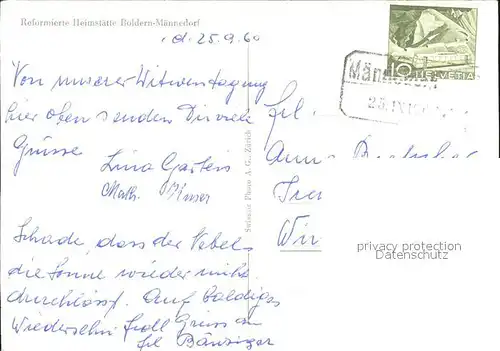 Reformierte Heimstätte Boldern-Männedorf
d. 25.9.60
Von unserer Witwentagung
hier oben senden Dir viele
Grüsse Lina Gartens
Math.
Schade, dass der Nebel
die Sonne wieder nicht
durchlässt. Auf baldiges
Wiedersehn. Frdl Gruss an
frl Bänziger
Swissair Photo A.-G., Zürich
10 HELVETIA
25.IX
frl.
Anna
Win
privacy protection
Datenschutz